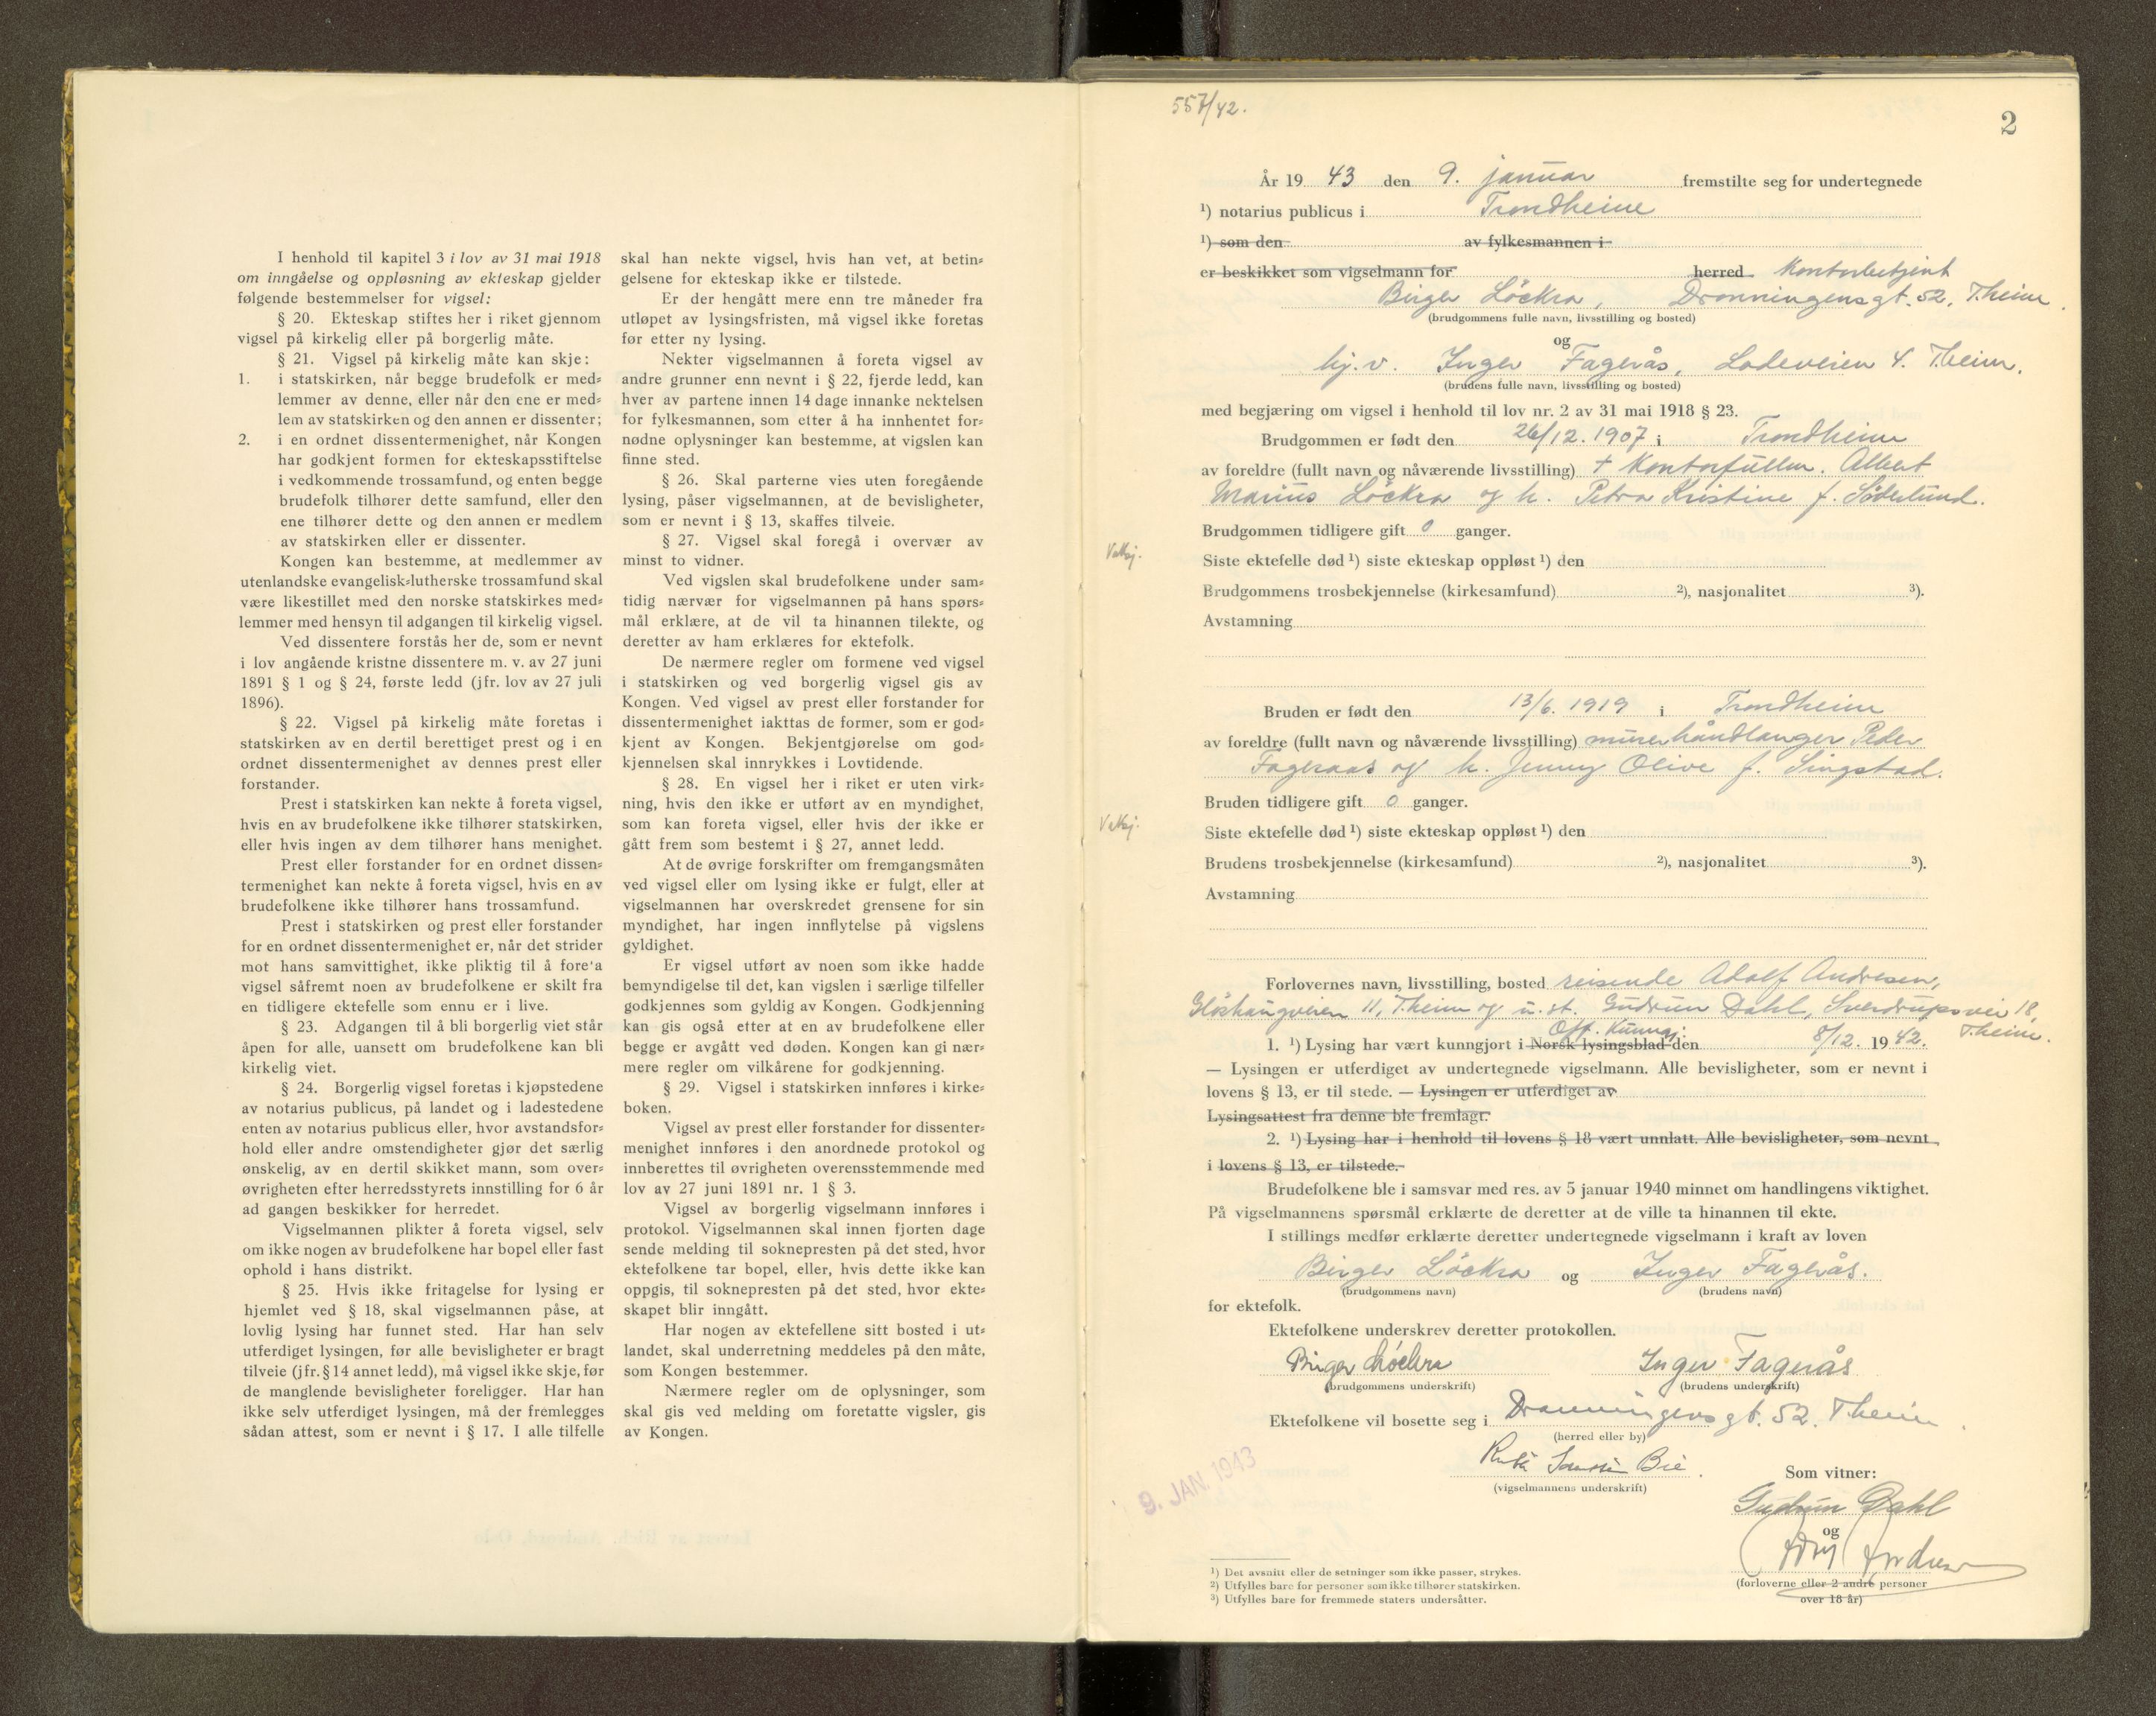 I henhold til kapitel 3 i lov av 31 mai 1918
om inngåelse og oppløsning av ekteskap gjelder
følgende bestemmelser for vigsel:
§ 20. Ekteskap stiftes her i riket gjennom
vigsel på kirkelig eller på borgerlig måte.
§ 21. Vigsel på kirkelig måte kan skje:
1. i statskirken, når begge brudefolk er med-
lemmer av denne, eller når den ene er med-
lem av statskirken og den annen er dissenter;
2. i en ordnet dissentermenighet, når Kongen
har godkjent formen for ekteskapsstiftelse
i vedkommende trossamfund, og enten begge
brudefolk tilhører dette samfund, eller den
ene tilhører dette og den annen er medlem
av statskirken eller er dissenter.
Kongen kan bestemme, at medlemmer av
utenlandske evangelisk-lutherske trossamfund skal
være likestillet med den norske statskirkes med-
lemmer med hensyn til adgangen til kirkelig vigsel.
Ved dissentere forstås her de, som er nevnt
i lov angående kristne dissentere m. v. av 27 juni
1891 § 1 og § 24, første ledd (jfr. lov av 27 juli
1896).
§ 22. Vigsel på kirkelig måte foretas i
statskirken av en dertil berettiget prest og i en
ordnet dissentermenighet av dennes prest eller
forstander.
Prest i statskirken kan nekte å foreta vigsel,
hvis en av brudefolkene ikke tilhører statskirken,
eller hvis ingen av dem tilhører hans menighet.
Prest eller forstander for en ordnet dissen-
termenighet kan nekte å foreta vigsel, hvis en av
brudefolkene ikke tilhører hans trossamfund.
Prest i statskirken og prest eller forstander
for en ordnet dissentermenighet er, når det strider
mot hans samvittighet, ikke pliktig til å fore'a
vigsel såfremt noen av brudefolkene er skilt fra
en tidligere ektefelle som ennu er i live.
§ 23. Adgangen til å bli borgerlig viet står
åpen for alle, uansett om brudefolkene kan bli
kirkelig viet.
§ 24. Borgerlig vigsel foretas i kjøpstedene
av notarius publicus, på landet og i ladestedene
enten av notarius publicus eller, hvor avstandsfor-
hold eller andre omstendigheter gjør det særlig
ønskelig, av en dertil skikket mann, som over-
øvrigheten efter herredsstyrets innstilling for 6 år
ad gangen beskikker for herredet.
Vigselmannen plikter å foreta vigsel, selv
om ikke nogen av brudefolkene har bopel eller fast
ophold i hans distrikt.
§ 25. Hvis ikke fritagelse for lysing er
hjemlet ved § 18, skal vigselmannen påse, at
lovlig lysing har funnet sted. Har han selv
utferdiget lysingen, før alle bevisligheter er bragt
tilveie (jfr. § 14 annet ledd), må vigsel ikke skje, før
de manglende bevisligheter foreligger. Har han
ikke selv utferdiget lysingen, må der fremlegges
sådan attest, som er nevnt i § 17. I alle tilfelle
skal han nekte vigsel, hvis han vet, at betin-
gelsene for ekteskap ikke er tilstede.
Er der hengått mere enn tre måneder fra
utløpet av lysingsfristen, må vigsel ikke foretas
før etter ny lysing.
Nekter vigselmannen å foreta vigsel av
andre grunner enn nevnt i § 22, fjerde ledd, kan
hver av partene innen 14 dage innanke nektelsen
for fylkesmannen, som etter å ha innhentet for-
nødne oplysninger kan bestemme, at vigslen kan
finne sted.
§ 26. Skal parterne vies uten foregående
lysing, påser vigselmannen, at de bevisligheter,
som er nevnt i § 13, skaffes tilveie.
§ 27. Vigsel skal foregå i overvær av
minst to vidner.
Ved vigslen skal brudefolkene under sam-
tidig nærvær for vigselmannen på hans spørs-
mål erklære, at de vil ta hinannen tilekte, og
deretter av ham erklæres for ektefolk.
De nærmere regler om formene ved vigsel
i statskirken og ved borgerlig vigsel gis av
Kongen. Ved vigsel av prest eller forstander for
dissentermenighet iakttas de former, som er god-
kjent av Kongen. Bekjentgjørelse om god-
kjennelsen skal innrykkes i Lovtidende.
§ 28. En vigsel her i riket er uten virk-
ning, hvis den ikke er utført av en myndighet,
som kan foreta vigsel, eller hvis der ikke er
gått frem som bestemt i § 27, annet ledd.
At de øvrige forskrifter om fremgangsmåten
ved vigsel eller om lysing ikke er fulgt, eller at
vigselmannen har overskredet grensene for sin
myndighet, har ingen innflytelse på vigslens
gyldighet.
Er vigsel utført av noen som ikke hadde
bemyndigelse til det, kan vigslen i særlige tilfeller
godkjennes som gyldig av Kongen. Godkjenning
kan gis også etter at en av brudefolkene eller
begge er avgått ved døden. Kongen kan gi nær-
mere regler om vilkårene for godkjenning.
§ 29. Vigsel i statskirken innføres i kirke-
boken.
Vigsel av prest eller forstander for dissenter-
menighet innføres i den anordnede protokol og
innberettes til øvrigheten overensstemmende med
lov av 27 juni 1891 nr. 1 § 3.
Vigsel av borgerlig vigselmann innføres i
protokol. Vigselmannen skal innen fjorten dage
sende melding til soknepresten på det sted, hvor
ektefolkene tar bopel, eller, hvis dette ikke kan
oppgis, til soknepresten på det sted, hvor ekte-
skapet blir inngått.
Har nogen av ektefellene sitt bosted i ut-
landet, skal underretning meddeles på den måte,
som Kongen bestemmer.
Nærmere regler om de oplysninger, som
skal gis ved melding om foretatte vigsler, gis
av Kongen.
557/42.
2
År 19 43 den 9. januar fremstilte seg for undertegnede
1) notarius publicus i Trondheim
1) som den av fylkesmannen i
er beskikket som vigselmann for herred Kontorbetjent
Birger Löckra, Dronningensgt. 52, T.heim.
(brudgommens fulle navn, livsstilling og bosted)
og
hj.v. Inger Fagerås, Ladeveien 4. T.heim.
(brudens fulle navn, livsstilling og bosted)
med begjæring om vigsel i henhold til lov nr. 2 av 31 mai 1918 § 23.
Brudgommen er født den 26/12. 1907 i Trondheim
av foreldre (fullt navn og nåværende livsstilling) † Kontorfullm. Albert
Marius Löckra og h. Petra Kristine f. Söderlund.
Brudgommen tidligere gift 0 ganger.
Siste ektefelle død 1) siste ekteskap oppløst 1) den
Brudgommens trosbekjennelse (kirkesamfund) 2), nasjonalitet 3).
Avstamning
Bruden er født den 13/6. 1919 i Trondheim
av foreldre (fullt navn og nåværende livsstilling) murerhåndlanger Peder
Fageraas og h. Jenny Olive f. Singstad.
Bruden tidligere gift 0 ganger.
Siste ektefelle død 1) siste ekteskap oppløst 1) den
Brudens trosbekjennelse (kirkesamfund) 2), nasjonalitet 3).
Avstamning
Forlovernes navn, livsstilling, bosted reisende Adolf Andresen,
Gløshaugveien 11, T.heim og u. st. Gudrun Dahl, Sverdrupsvei 18,
T.heim.
Off. Kunngj.
1. 1) Lysing har vært kunngjort i Norsk lysingsblad den 8/12. 19 42.
— Lysingen er utferdiget av undertegnede vigselmann. Alle bevisligheter, som er nevnt i
lovens § 13, er til stede. — Lysingen er utferdiget av
Lysingsattest fra denne ble fremlagt.
2. 1) Lysing har i henhold til lovens § 18 vært unnlatt. Alle bevisligheter, som nevnt
i lovens § 13, er tilstede.
Brudefolkene ble i samsvar med res. av 5 januar 1940 minnet om handlingens viktighet.
På vigselmannens spørsmål erklærte de deretter at de ville ta hinannen til ekte.
I stillings medfør erklærte deretter undertegnede vigselmann i kraft av loven
Birger Löckra og Inger Fagerås.
(brudgommens navn) (brudens navn)
for ektefolk.
Ektefolkene underskrev deretter protokollen.
Birger Löckra Inger Fagerås
(brudgommens underskrift) (brudens underskrift)
Ektefolkene vil bosette seg i Dronningensgt. 52, T.heim.
(herred eller by)
Bie.
(vigselmannens underskrift)
9. JAN. 1943
Som vitner:
Gudrun Dahl
og
(forloverne eller 2 andre personer
over 18 år)
1) Det avsnitt eller de setninger som ikke passer, strykes.
2) Utfylles bare for personer som ikke tilhører statskirken.
3) Utfylles bare for fremmede staters undersåtter.